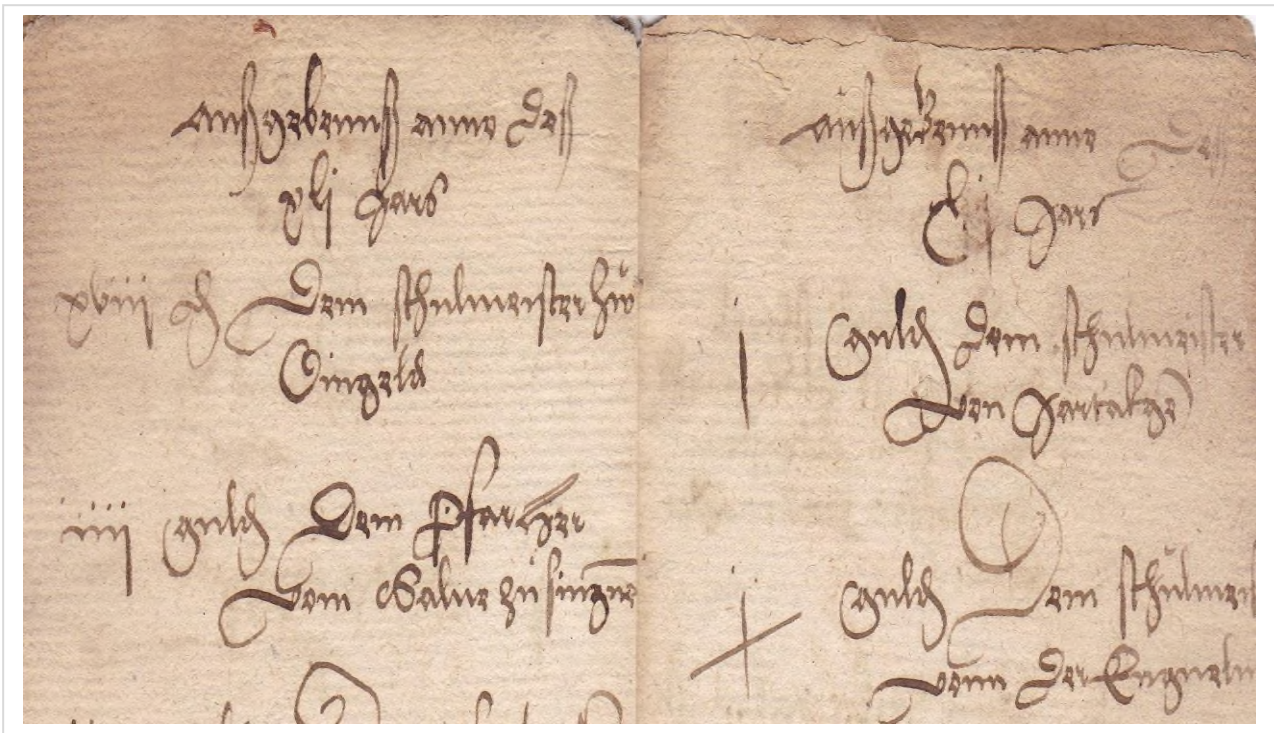 außgebenuß anno des
xlj Jars
xviii d Dem schulmeister zůr
Singeld
iiii guld Dem Pfarher
vom Salve zů singenn
außgebenuß anno des
lj Jars
j guld dem schulmeister
von Jartalge
guld Dem schůlmei
vonn der Engeln